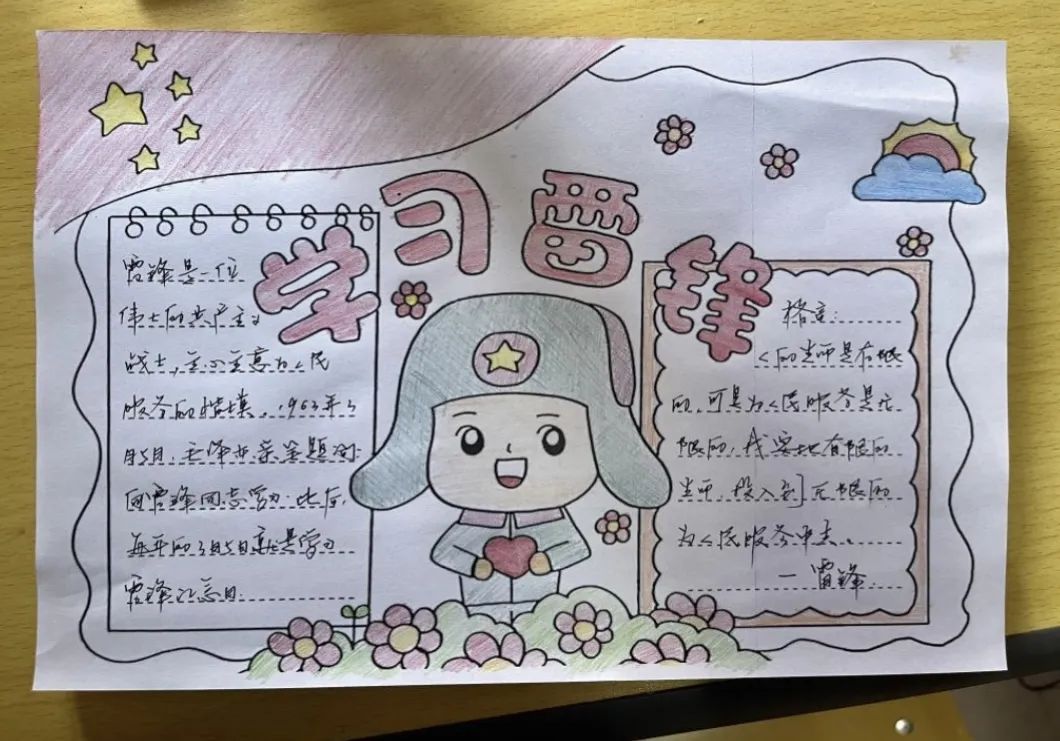 学习雷锋
雷锋是一位
伟大的共产主义
战士,全心全意为人民
服务的楷模。1963年3
月5日,毛泽东亲笔题词:
向雷锋同志学习.此后,
每年的3月5日就是学习
雷锋纪念日.
格言:
人的生命是有限
的,可是为人民服务是无
限的,我要把有限的
生命,投入到无限的
为人民服务中去。
一雷锋.